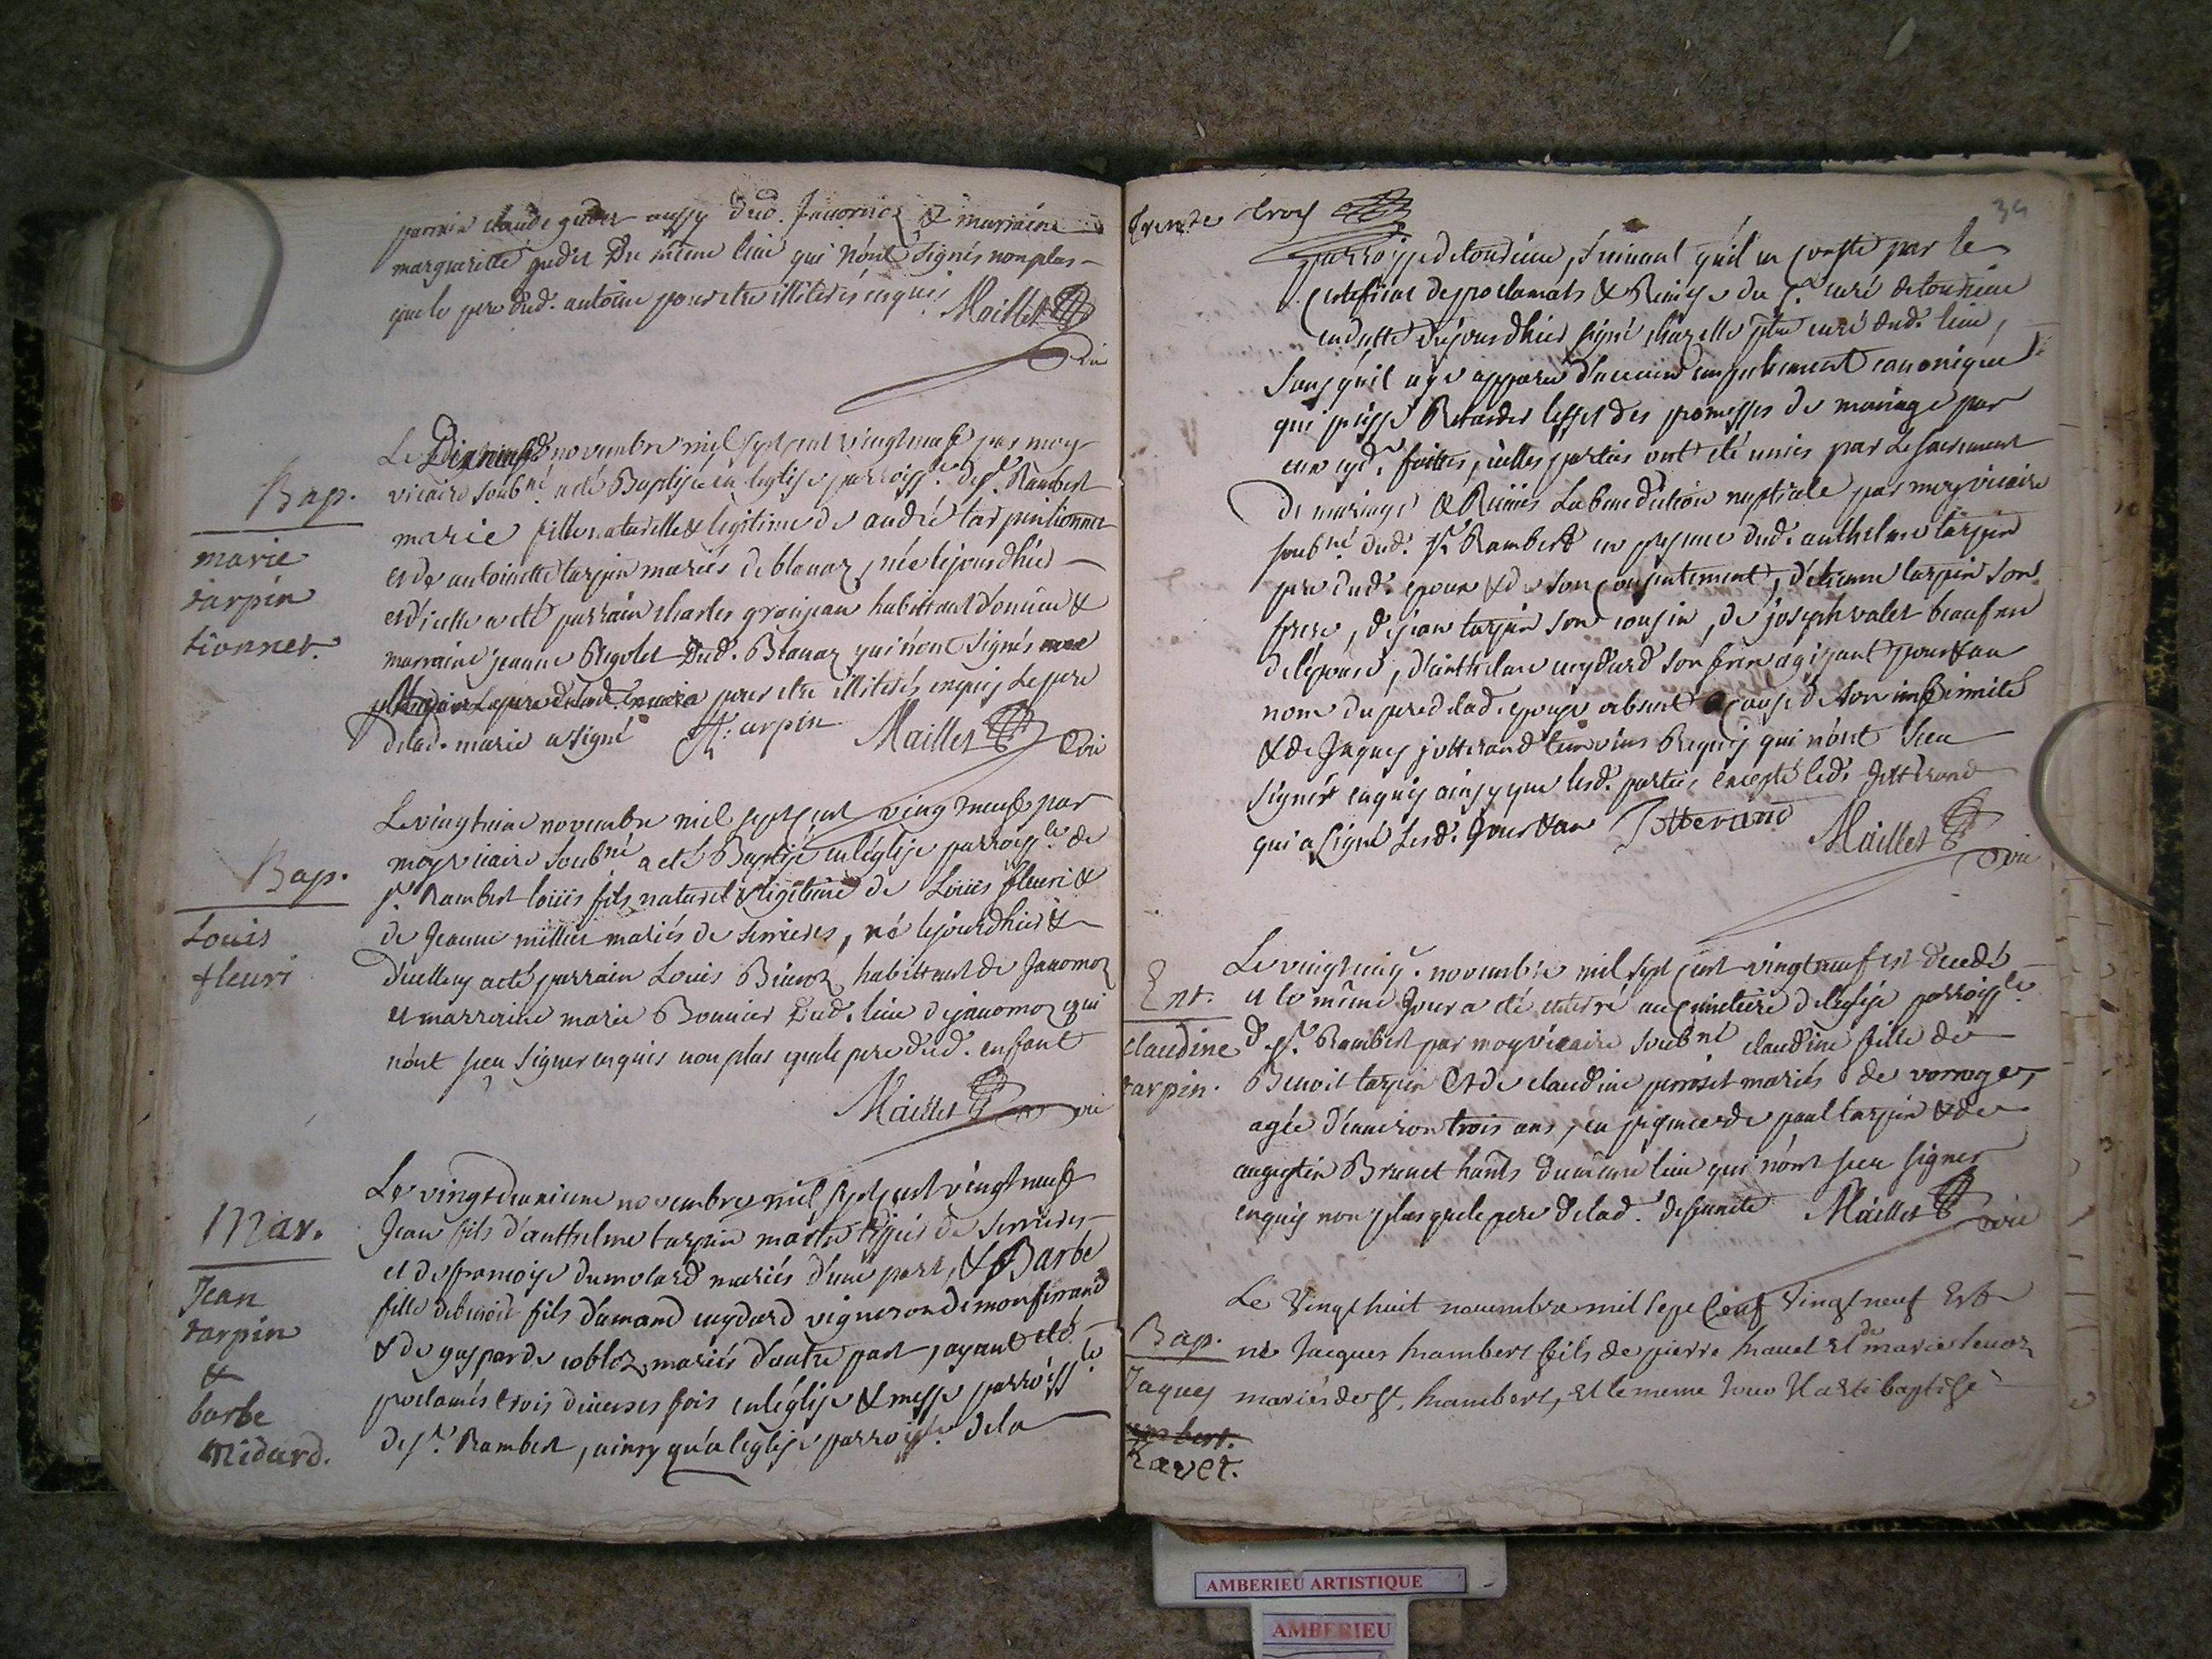 parrain claude gudet aussy dud. Januornoz & marraine
margueritte gudet du même lieu qui n'ont signés non plus
que le pere dud. antoine pour etre illiterés enquis Maillet vic
Bap.
marie
tarpin
tionnet.
Le Dixneuf novembre mil sept cent vingt neuf par moy
vicaire soubné a été Baptisée en leglise parroissle de st Rambert
marie fille naturelle & legitime de andré tarpin tionnet
et de antoinette tarpin mariés de blanaz, née lejourdhier
et d'icelle a eté parrain charles grosjean habittant d'onnieu &
marraine jeanne Rigolet dud. Blanaz qui n'ont signés
pour etre illiterés enquis Le pere
delad. marie a signé A: tarpin Maillet vic
Bap.
Louis
fleuri
Le vingtieme novembre mil sept cent vingt neuf par
moy vicaire soubné a eté Baptisé en léglise parroissle de
st Rambert loüis fils naturel & légitime de Loüis fleuri &
de Jeanne millier mariés de serrieres, né lejourdhier &
d'icelluy a eté parrain Louis habittant de Januornoz
et marraine marie Bonnier dud. lieu de januornoz qui
n'ont sceu signer enquis non plus que le pere dud. enfant
Maillet vic
Mar.
Jean
tarpin
&
barbe
Midard.
Le vingtdeuxieme novembre mil sept cent vingt neuf
Jean fils d'anthelme tarpin maitre de serrieres
et de françoise dumolard mariés d'une part, & Barbe
fille de benoit fils d'amand meydard vigneron de monferrand
& de gasparde cobloz mariés d'autre part, ayant eté
proclamés trois diverses fois en léglise & messe parroissle
de st Rambert, ainsy qu'a léglise parroissle de la
trente troys
34
parroisse de toucieux, suivant qu'il en conste par le
certificat de proclamats & Remise du sr curé detoucieux
en datte dujourdhier signé chazelle ptre curé dud. lieu,
sans qu'il aye apparu d'aucun empechement canonique
qui puisse Retarder leffet des promesses de mariage par
eux cyde. faittes, icelles parties ont eté unies par Le sacrement
de mariage & Reçues La benediction nuptiale par moy vicaire
soubné dud. st Rambert en presence dud. anthelme tarpin
pere dud. epoux & de son consentement, d'étienne tarpin son
frere, de jean tarpin son cousin, de joseph valet beaufrere
de lépouse, d'anthelme meydard son frere agissant pour & au
nom du pere delad. epouse absent a cause de son infirmité
& de Jaques jotterand temoins Requis qui n'ont sceu
signer enquis ainsy que lesd. parties excepté led. Jotterand
qui a signé lesd. Jour & an Jotterand Maillet vic
Ent.
claudine
tarpin.
Le vingtcinq. novembre mil sept cent vingt neuf est decedé
et le même Jour a été enterré au cimetiere de leglise parroissle
de st Rambert par moy vicaire soubné claudine fille de
Benoit tarpin et de claudine perroset mariés de vorrage,
agée d'environ trois ans, en presence de paul tarpin & de
augustin Brunet hants du même lieu qui n'ont sceu signer
enquis non plus que le pere delad. defunte Maillet vic
Bap.
Jaques
Ravet.
Le Vingt huit novembre mil sept Cent vingt neuf Est
né Jacques hrambert fils de pierre hravet et de marie
mariés de st. hrambert, et le meme Jour Il a eté baptisé
AMBERIEU ARTISTIQUE
AMBERIEU